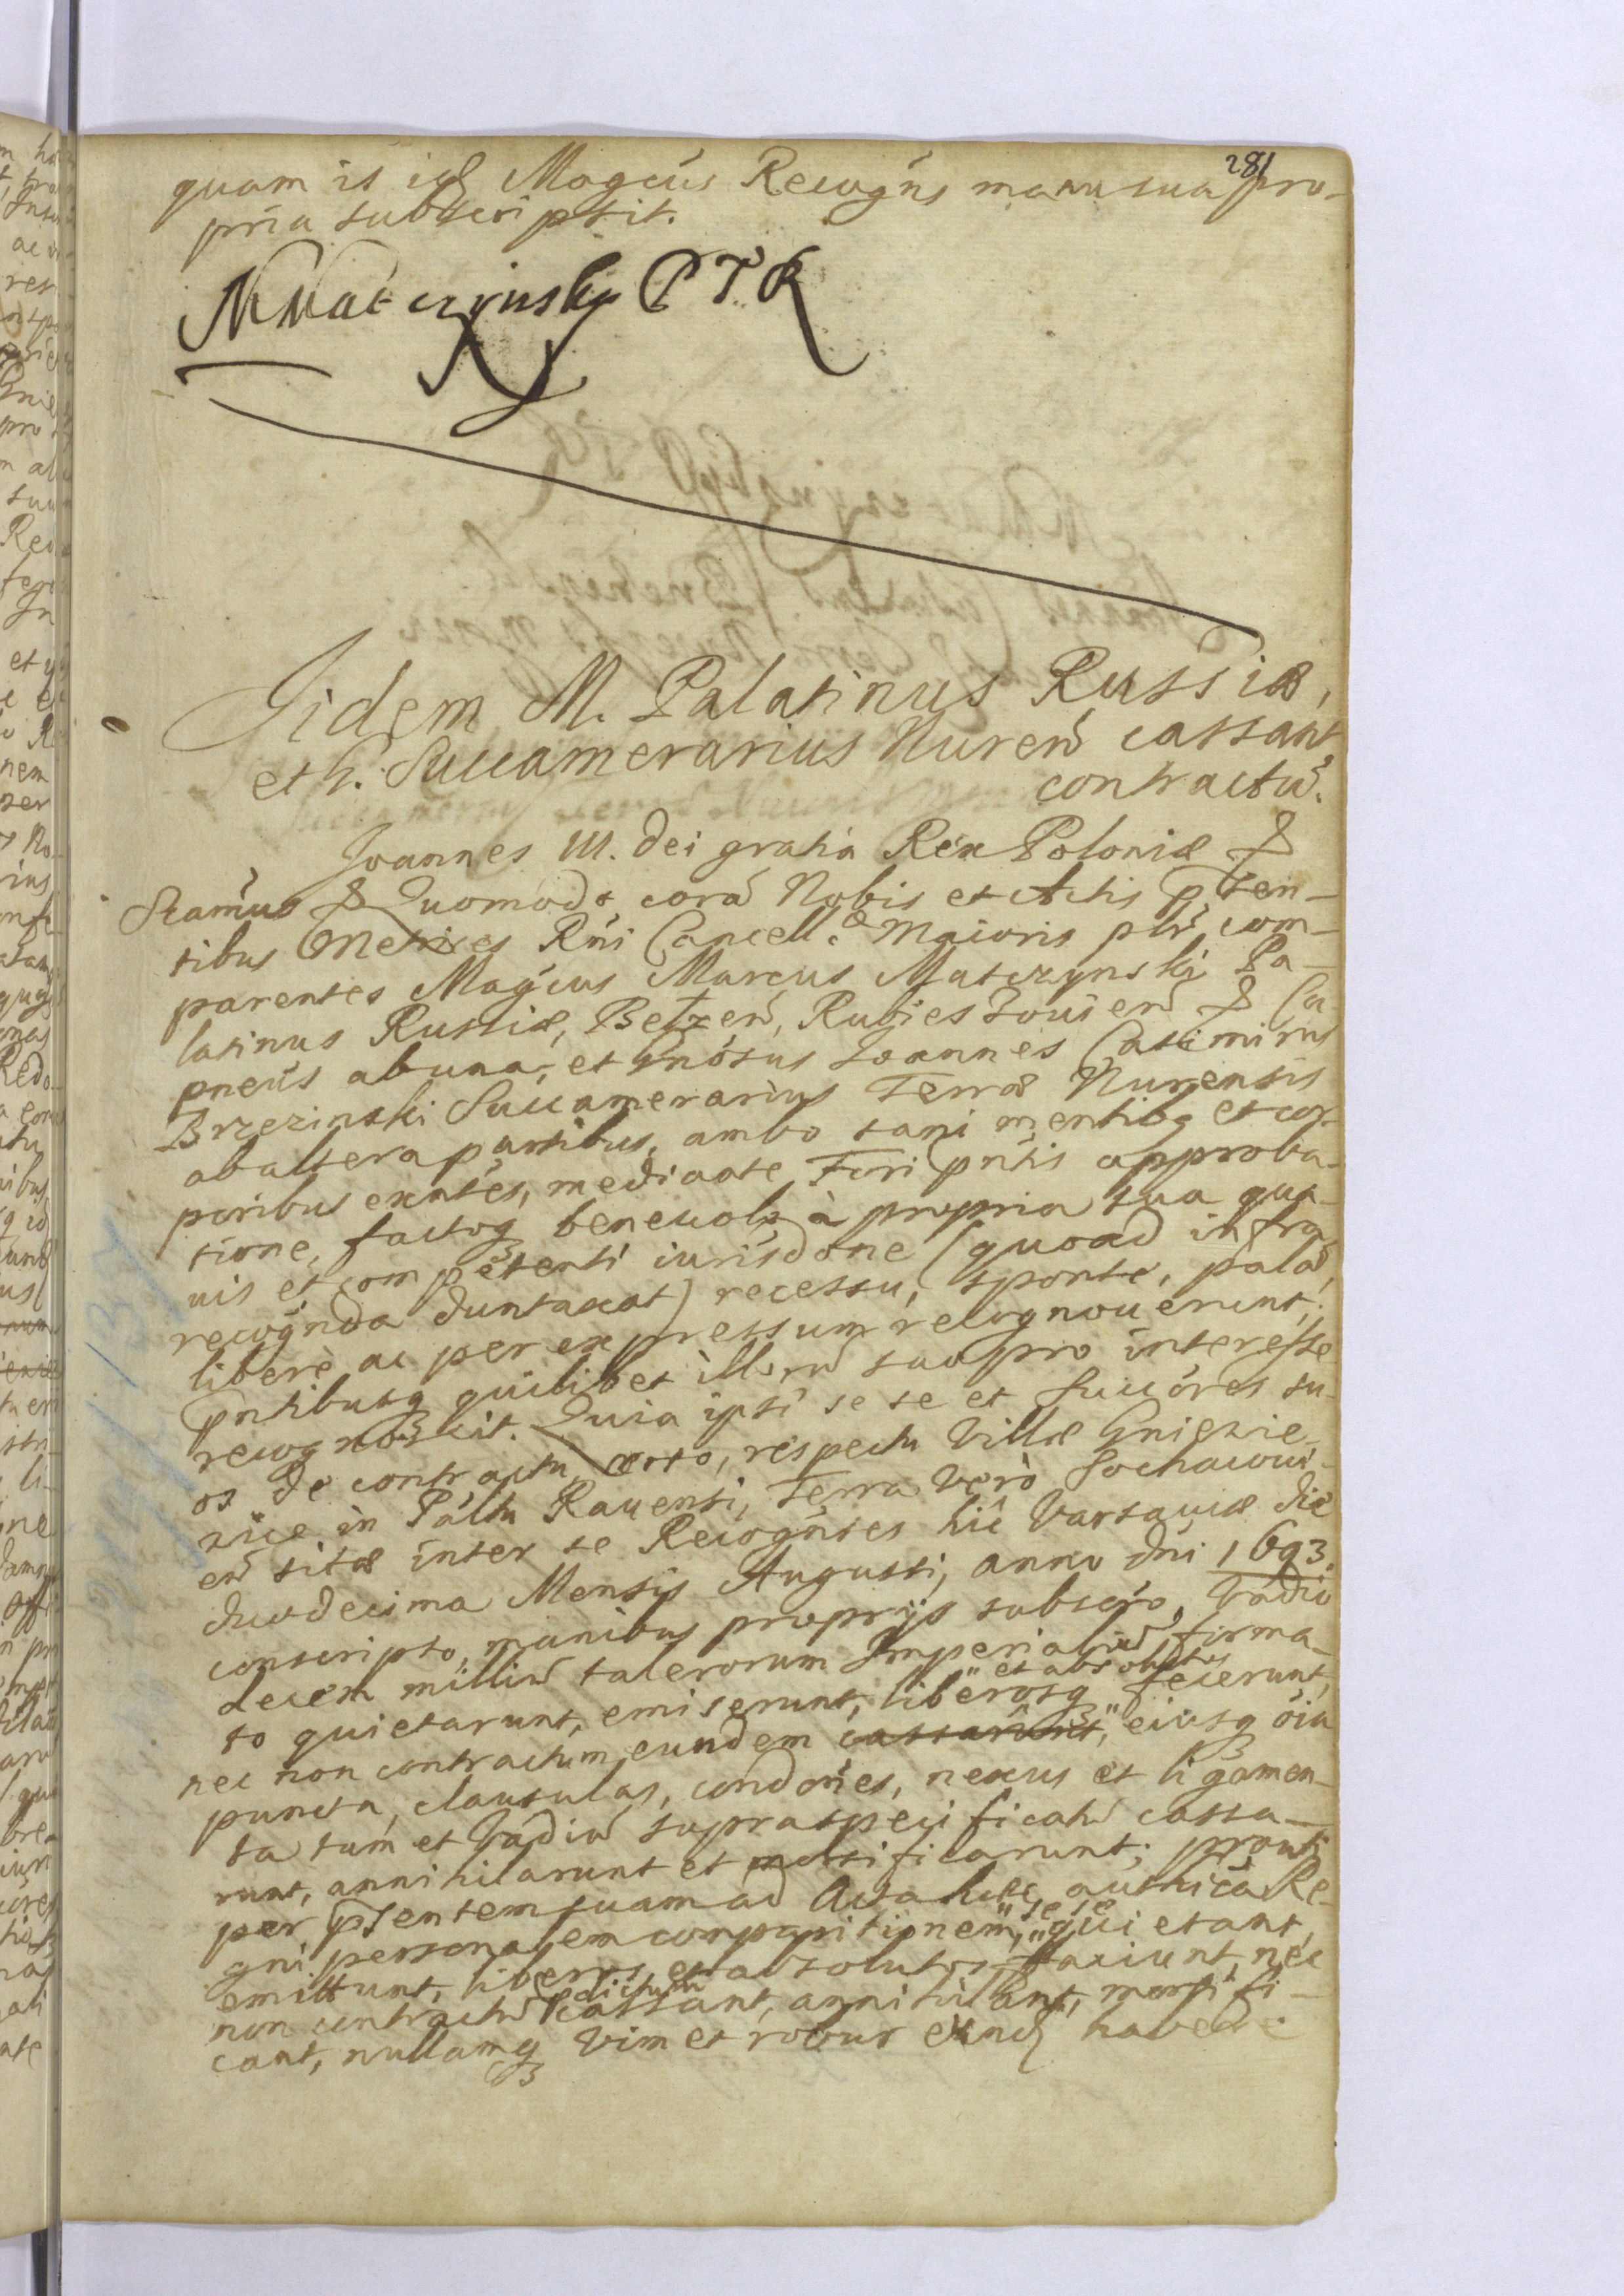 281
quam is id Magcus Recogns manu sua pro-
pria subscripsit.
MMatczynsky P T R
Iidem M. Palatinus Russiæ,
et G. Succamerarius Nureñ cassant
contractũ.
Joannes III. Dei gratia Rex Poloniæ &
Scamus & Quomodo corã Nobis et Actis psen-
tibus Metrices Rni Cancell.æ Maioris plr com-
parentes Magcus Marcus Matczynski Pa-
latinus Russiæ, Betzeñ, Rubieszouieñ & Ca-
pneus ab una, et Gnosus Joannes Casimirus
Brzezinski Succamerarius Terræ Nurensis
ab altera partibus, ambo sani mentibq et cor-
poribus exntes, mediante Fori pntis approba-
tione, factoq benevole à propria sua qua-
uis et competenti iurisdone (quoad infra
recognda duntaxat) recessu, sponte, palã,
liberè ac per expressum recognouerunt,
pntibusq quilibet illorũ suo pro interesse
recognoscit. Quia ipsi se se et Succores su-
os de contractu certo, respectu Villæ Gniewie-
wice in Paltu Rauensi, Terra verò Sochacoui-
eñ sitæ inter se Recogntes hîc Varsauiæ die
duodecima Mensis Augusti, anno dni 1693.
conscripto, manibus proprijs subscro, Vadio
decem milliũ talerorum Imperialiũ firma-
to quietarunt, emiserunt, liberosq "et absolutos" fecerunt,
nec non contractum eundem cassarunt, eiusq oia
puncta, clausulas, condones, nexus et ligamen-
ta tum et Vadiũ supraspecificatũ cassa-
runt, annihilarunt et mortificarunt; prouti
per psentem suam ad Acta hæc authca Re-
gni personalem comparitionem, "se se" quietant,
emittunt, liberos et absolutos faciunt, nec
non contractũ dictum cassant, annihilant, mortifi-
cant, nullamq vim et robur exnd habere